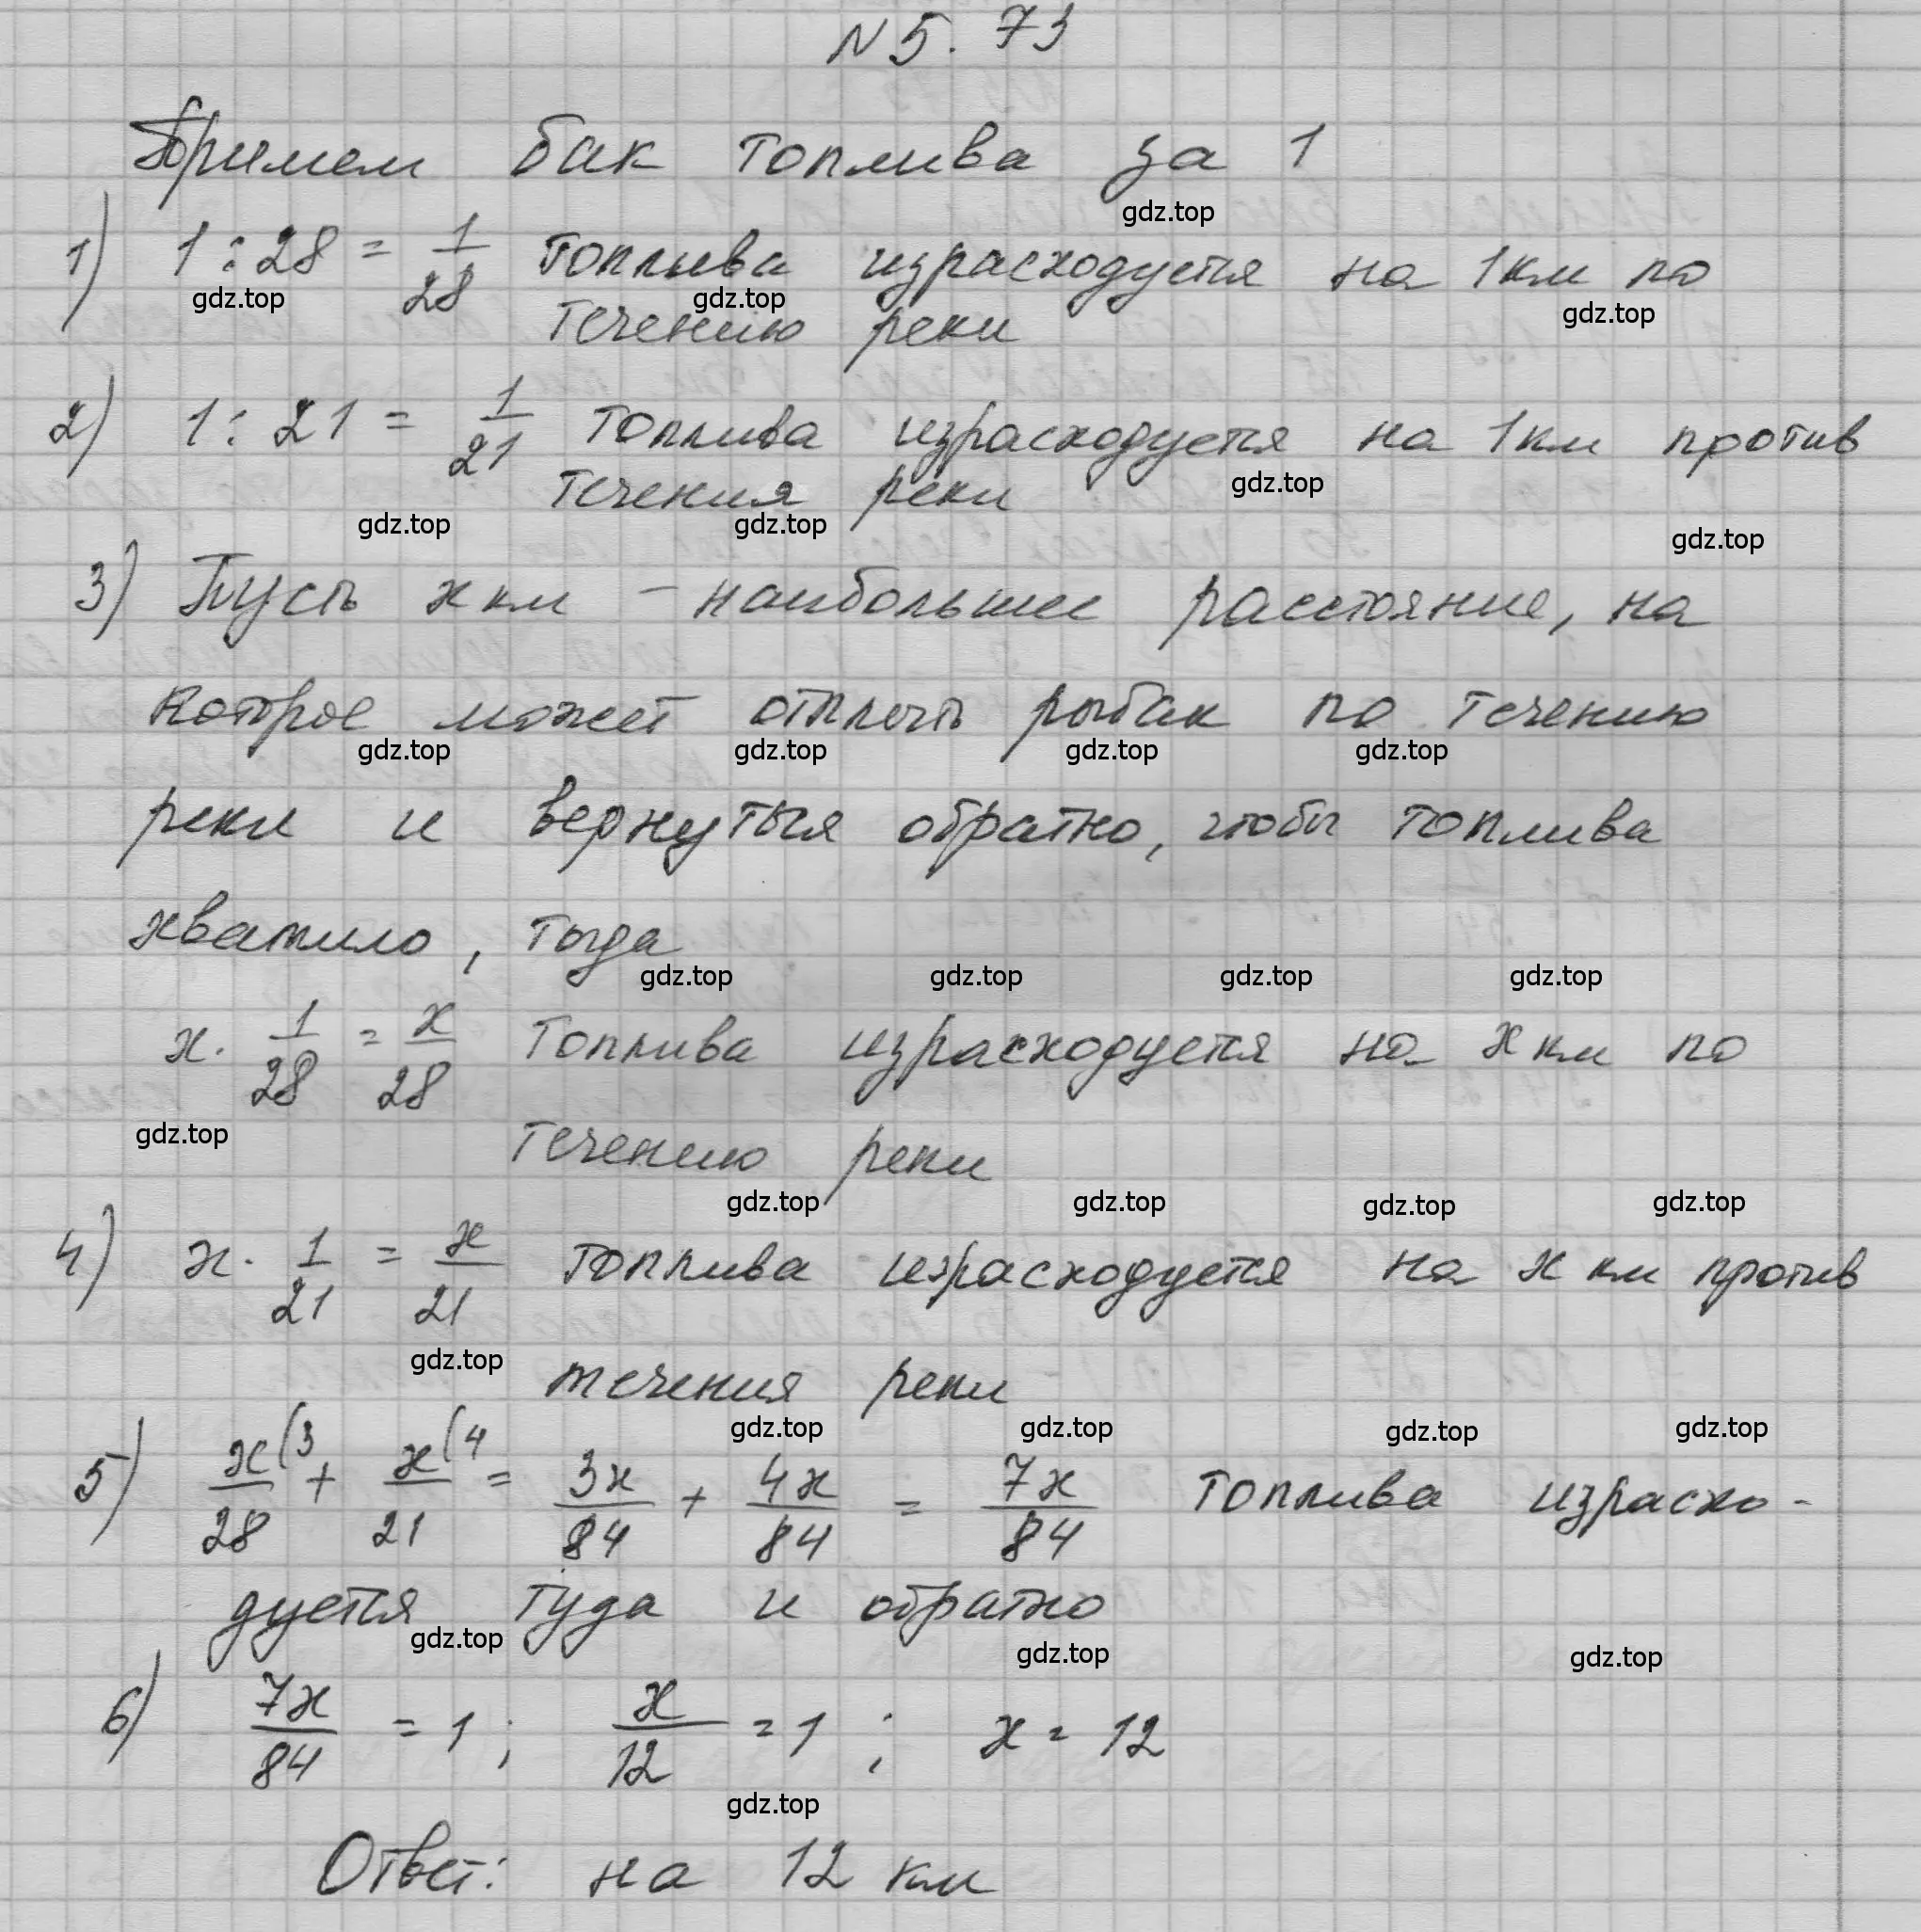 N 5.73
Примем бак топлива за 1
gdz.top
1) 1 : 28 = 1/28 топлива израсходуется на 1 км по
gdz.top gdz.top gdz.top
течению реки
2) 1 : 21 = 1/21 топлива израсходуется на 1 км против
течения реки gdz.top
gdz.top gdz.top gdz.top
3) Пусть x км – наибольшее расстояние, на
которое может отплыть рыбак по течению
gdz.top gdz.top gdz.top gdz.top
реки и вернуться обратно, чтобы топлива
хватило, тогда
gdz.top gdz.top gdz.top gdz.top
x · 1/28 = x/28 топлива израсходуется на x км по
gdz.top
течению реки
gdz.top gdz.top gdz.top gdz.top
4) x · 1/21 = x/21 топлива израсходуется на x км против
gdz.top
течения реки
gdz.top gdz.top gdz.top gdz.top
5) x/28 (3 + x/21 (4 = 3x/84 + 4x/84 = 7x/84 топлива израсхо-
дуется туда и обратно
gdz.top gdz.top gdz.top
6) 7x/84 = 1; x/12 = 1; x = 12
gdz.top
Ответ: на 12 км